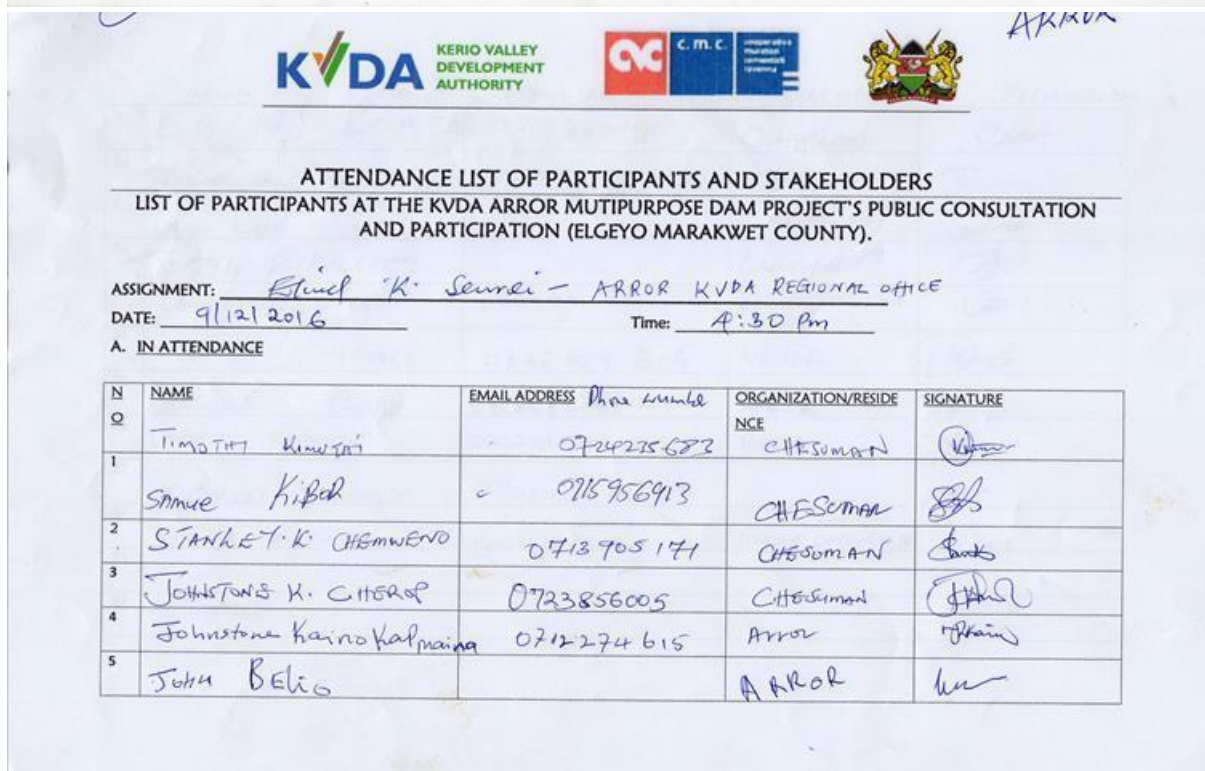 ARROR
KVDA KERIO VALLEY DEVELOPMENT AUTHORITY
c.m.c.
ATTENDANCE LIST OF PARTICIPANTS AND STAKEHOLDERS
LIST OF PARTICIPANTS AT THE KVDA ARROR MUTIPURPOSE DAM PROJECT'S PUBLIC CONSULTATION
AND PARTICIPATION (ELGEYO MARAKWET COUNTY).
ASSIGNMENT: K. – ARROR KVDA REGIONAL OFFICE
DATE: 9/12/2016 Time: 4:30 Pm
A. IN ATTENDANCE
NO NAME EMAIL ADDRESS Phone ORGANIZATION/RESIDENCE SIGNATURE
TIMOTHY 0724235683 CHESUMAN
1 SAMUE KIBOR 0715956913 CHESUMAN
2. STANLEY. K. CHEMWENO 0713905171 CHESUMAN
3 JOHNSTONE K. CHEROP 0723856005 CHESUMAN
4 Johnstone Kaino Kalpmaina 0712274615 Arror
5 JOHN BELIO ARROR